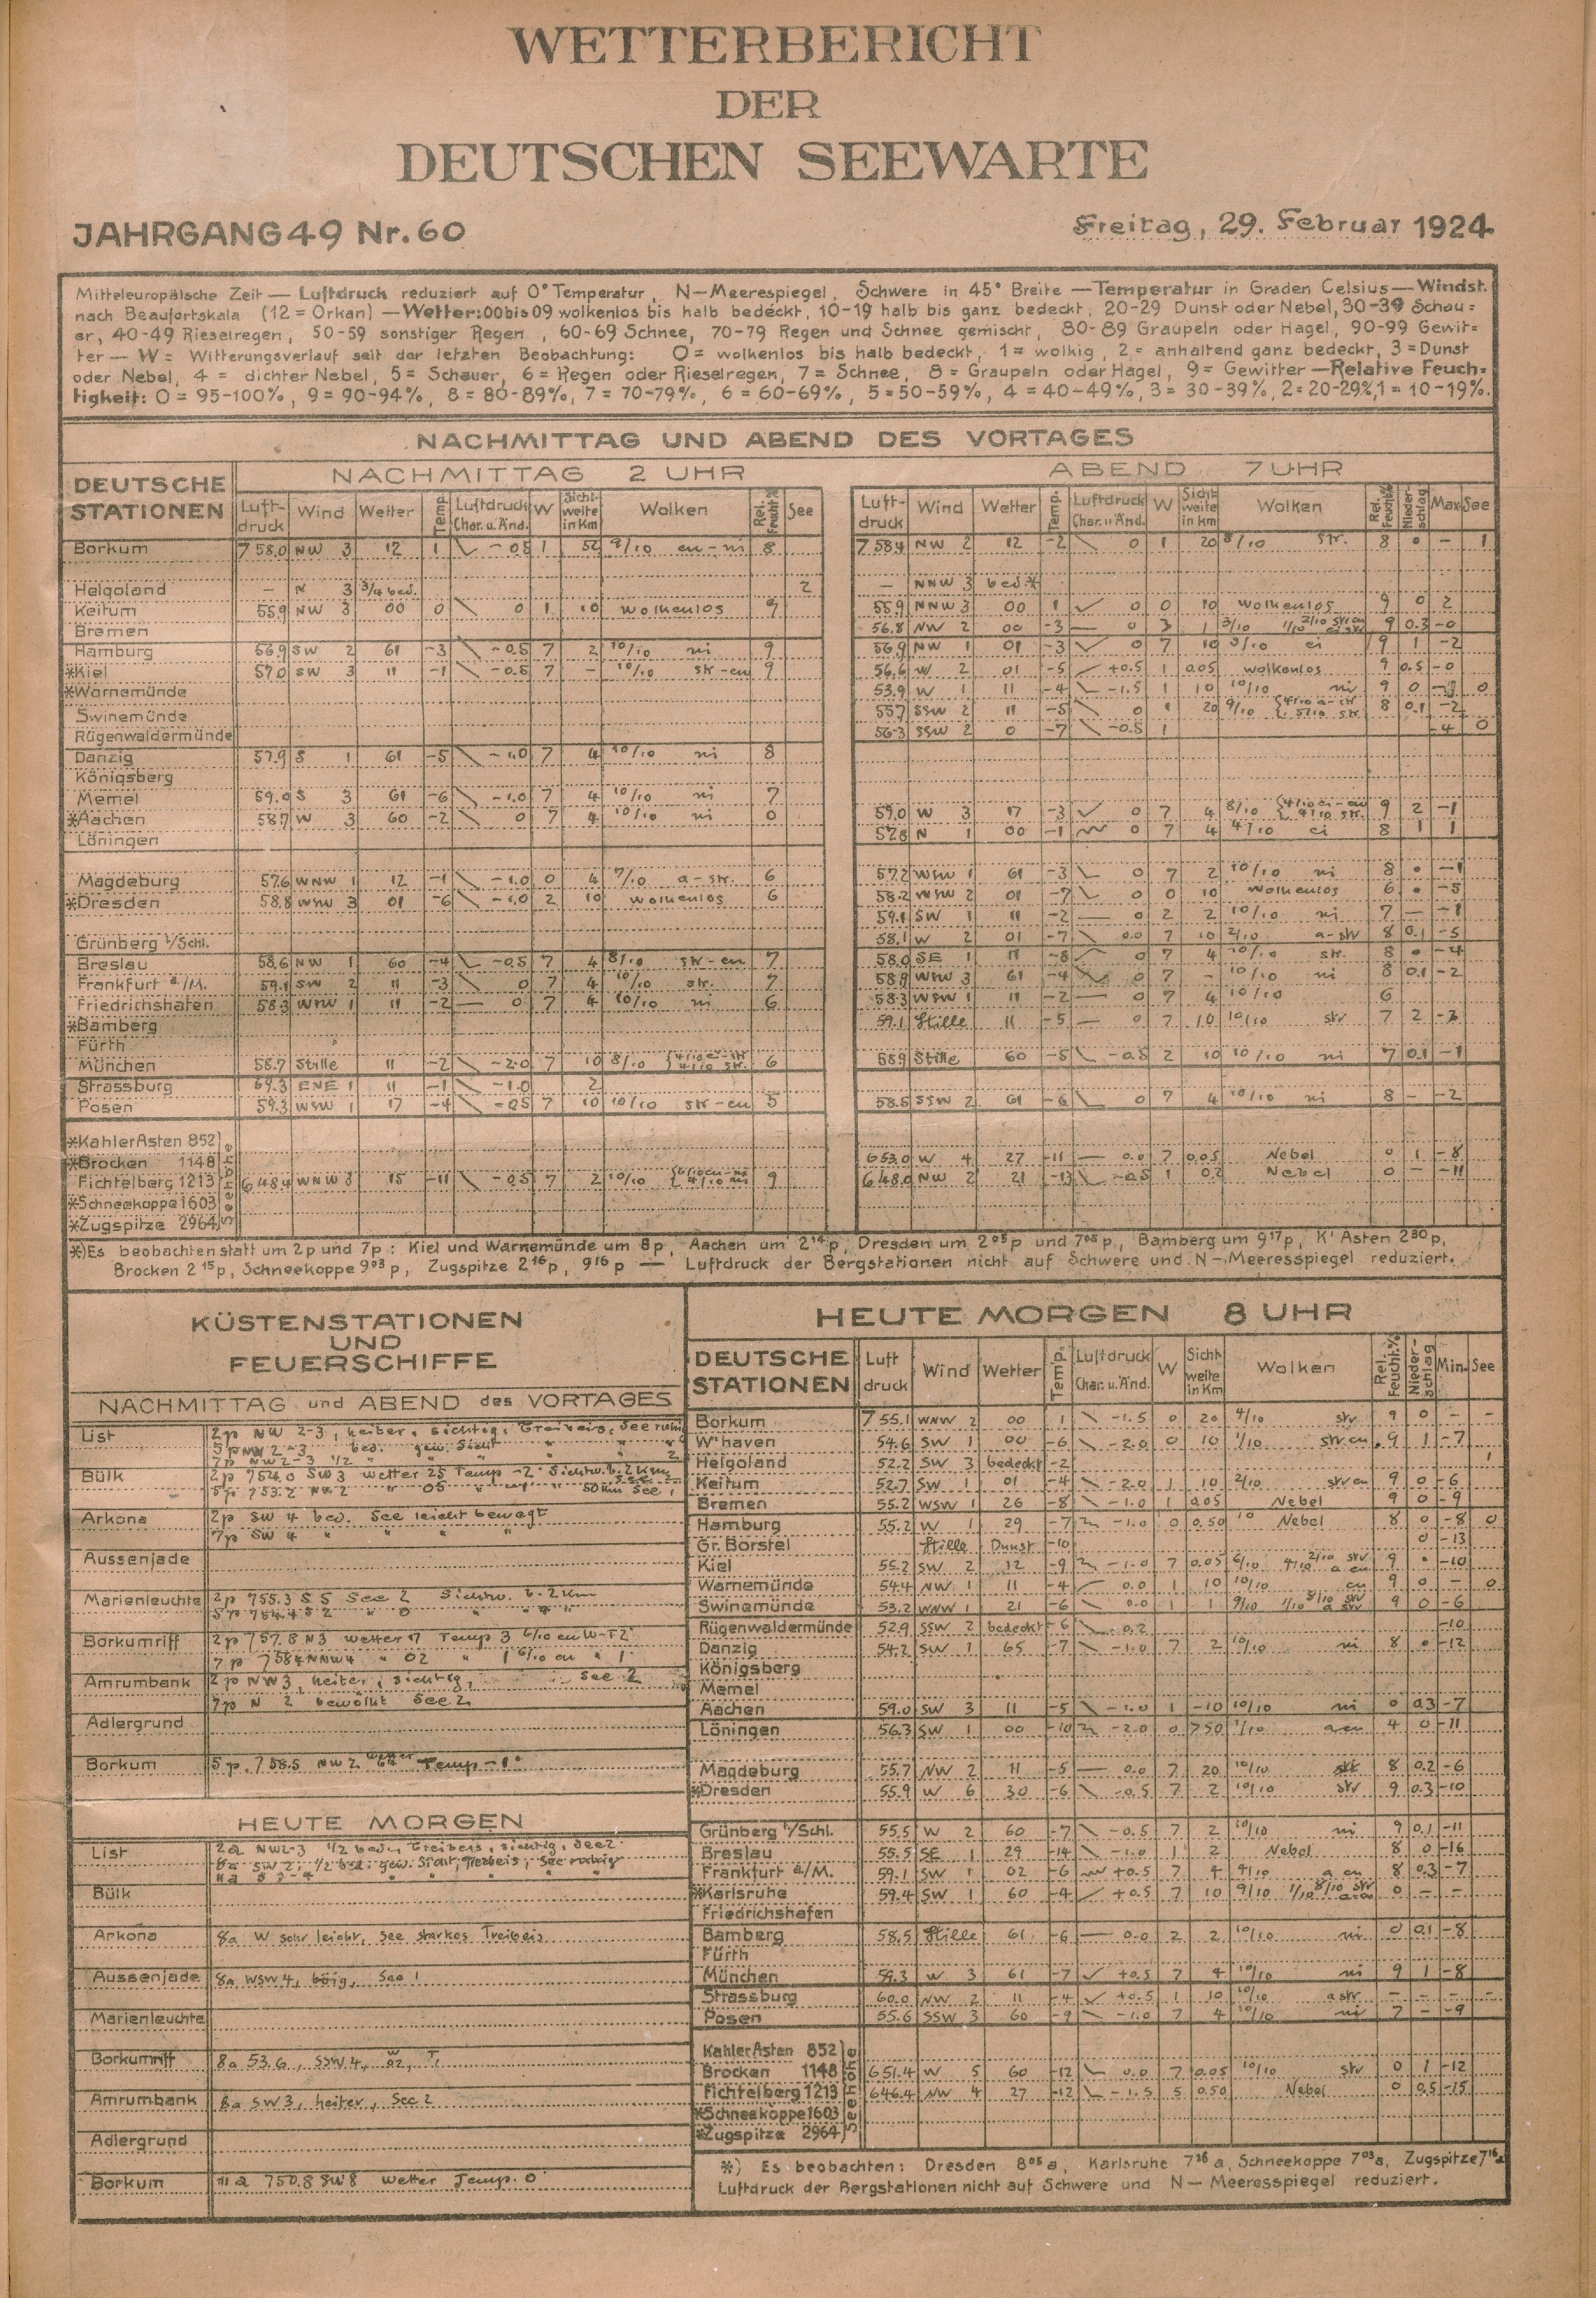 WETTERBERICHT
DER
DEUTSCHEN SEEWARTE
JAHRGANG 49 Nr. 60
Freitag, 29. Februar 1924
Mitteleuropäische Zeit — Luftdruck reduziert auf 0° Temperatur, N—Meerespiegel, Schwere in 45° Breite — Temperatur in Graden Celsius — Windst.
nach Beaufortskala (12 = Orkan) — Wetter: 00 bis 09 wolkenlos bis halb bedeckt, 10-19 halb bis ganz bedeckt, 20-29 Dunst oder Nebel, 30-39 Schau=
er, 40-49 Rieselregen, 50-59 sonstiger Regen, 60-69 Schnee, 70-79 Regen und Schnee gemischt, 80-89 Graupeln oder Hagel, 90-99 Gewit=
ter — W = Witterungsverlauf seit der letzten Beobachtung: 0 = wolkenlos bis halb bedeckt, 1 = wolkig, 2 = anhaltend ganz bedeckt, 3 = Dunst
oder Nebel, 4 = dichter Nebel, 5 = Schauer, 6 = Regen oder Rieselregen, 7 = Schnee, 8 = Graupeln oder Hagel, 9 = Gewitter — Relative Feuch=
tigkeit: 0 = 95-100%, 9 = 90-94%, 8 = 80-89%, 7 = 70-79%, 6 = 60-69%, 5 = 50-59%, 4 = 40-49%, 3 = 30-39%, 2 = 20-29%, 1 = 10-19%.
NACHMITTAG UND ABEND DES VORTAGES
DEUTSCHE STATIONEN
NACHMITTAG 2 UHR
Luft-druck Wind Wetter Temp. Luftdruck Char. u. Änd. W Sicht-weite in Km Wolken Rel. Feucht.% See
ABEND 7 UHR
Luft-druck Wind Wetter Temp. Luftdruck Char. u. Änd. W Sicht-weite in Km Wolken Rel. Feucht.% Nieder-schlag Max See
Borkum 758.0 NW 3 12 1 -0.5 1 52 9/10 cu-ni 8 758.4 NW 2 12 -2 0 1 20 8/10 str. 8 • - 1
Helgoland — N 3 3/4 bed. 2 — NNW 3 bed.*
Keitum 55.9 NW 3 00 0 0 1 10 wolkenlos 9 55.9 NNW 3 00 1 0 0 10 wolkenlos 9 0 2
Bremen 56.8 NW 2 00 -3 0 3 1 3/10 9 0.3 -0
Hamburg 56.9 SW 2 61 -3 -0.5 7 2 10/10 ni 9 56.9 NW 1 01 -3 0 7 10 3/10 ci 9 1 -2
*Kiel 57.0 SW 3 11 -1 -0.5 7 — 10/10 str-cu 9 56.6 W 2 01 -5 +0.5 1 0.05 wolkenlos 9 0.5 -0
*Warnemünde 53.9 W 1 11 -4 -1.5 1 10 10/10 ni 9 0 0
Swinemünde 55.7 SSW 2 11 -5 0 1 20 9/10 8 0.1 -2
Rügenwaldermünde 56.3 SSW 2 0 -7 -0.5 1 -4 0
Danzig 57.9 S 1 61 -5 -1.0 7 4 10/10 ni 8
Königsberg
Memel 59.0 S 3 61 -6 -1.0 7 4 10/10 ni 7
*Aachen 58.7 W 3 60 -2 0 7 4 10/10 ni 0 59.0 W 3 17 -3 0 7 4 8/10 9 2 -1
Löningen 57.8 N 1 00 -1 0 7 4 4/10 ci 8 1 1
Magdeburg 57.6 WNW 1 12 -1 -1.0 0 4 7/10 a-str. 6 57.2 WSW 1 61 -3 0 7 2 10/10 ni 8 • -1
*Dresden 58.8 WSW 3 01 -6 -1.0 2 10 wolkenlos 6 58.2 WSW 2 01 -7 0 0 10 wolkenlos 6 • -5
59.1 SW 1 11 -2 0 2 2 10/10 ni 7 — -1
Grünberg i/Schl. 58.1 W 2 01 -7 0.0 7 10 2/10 a-str 8 0.1 -5
Breslau 58.6 NW 1 60 -4 -0.5 7 4 8/10 str-cu 7 58.0 SE 1 11 -8 0 7 4 10/10 str. 8 • -4
Frankfurt a/M. 59.1 SW 2 11 -3 0 7 4 10/10 str. 7 58.9 WNW 3 61 -4 0 7 - 10/10 ni 8 0.1 -2
Friedrichshafen 58.3 WNW 1 11 -2 0 7 4 10/10 ni 6 58.3 WSW 1 11 -2 0 7 4 10/10 6
*Bamberg 59.1 Stille 11 -5 0 7 10 10/10 str 7 2 -3
Fürth
München 58.7 Stille 11 -2 -2.0 7 10 8/10 6 58.9 Stille 60 -5 -0.5 2 10 10/10 ni 7 0.1 -1
Strassburg 64.3 ENE 1 11 -1 -1.0 2
Posen 59.3 WSW 1 17 -4 -0.5 7 10 10/10 str-cu 5 58.5 SSW 2 61 -6 0 7 4 10/10 ni 8 - -2
*Kahler Asten 852
*Brocken 1148 653.0 W 4 27 -11 0.0 7 0.05 Nebel 0 1 -8
Fichtelberg 1213 648.4 WNW 3 15 -11 -0.5 7 2 10/10 9 648.0 NW 2 21 -13 -0.5 1 0.2 Nebel 0 — -11
*Schneekoppe 1603
*Zugspitze 2964
Seehöhe
*) Es beobachten statt um 2p und 7p: Kiel und Warnemünde um 8p, Aachen um 2 14 p, Dresden um 2 05 p und 7 05 p, Bamberg um 9 17 p, K' Asten 2 30 p,
Brocken 2 15 p, Schneekoppe 9 03 p, Zugspitze 2 16 p, 9 16 p — Luftdruck der Bergstationen nicht auf Schwere und N—Meeresspiegel reduziert.
KÜSTENSTATIONEN
UND
FEUERSCHIFFE
NACHMITTAG und ABEND des VORTAGES
List 2p NW 2-3, heiter, sichtig, Treibeis, See ruhig
5p NW 2-3 bed. gew. Sicht " "
7p NW 2-3 1/2 " " "
Bülk 2p 754.0 SW 3 Wetter 25 Temp -2° Sichtw. b. 2 Km
5p 753.2 NW 2 " 05 " 50 Km See 1
Arkona 2p SW 4 bed. See leicht bewegt
7p SW 4 " " " "
Aussenjade
Marienleuchte 2p 755.3 S 5 See 2 Sichtw. b. 2 Km
5p 754.4 S 2 " 0 " " "
Borkumriff 2p 757.8 N 3 Wetter 17 Temp 3 6/10 cu W-T 2
7p 758.4 NNW 4 " 02 " 1 6/10 cu " 1
Amrumbank 2p NW 3, heiter, sichtig, See 2
7p N 2 bewölkt See 2
Adlergrund
Borkum 5p. 758.5 NW 2 Wetter 64 Temp -1°
HEUTE MORGEN
List 2a NW 2-3 1/2 bed. Treibeis, sichtig, See 2
8a SW 2; 1/2 bed. gew. Sicht, Treibeis, See ruhig
11a S 3-4 " " " "
Bülk
Arkona 8a W sehr leicht, See starkes Treibeis
Aussenjade 8a WSW 4, böig, See 1
Marienleuchte
Borkumriff 8a 53.6, SSW 4, W 02, T.
Amrumbank 8a SW 3, heiter, See 2
Adlergrund
Borkum 11a 750.8 SW 8 Wetter Temp. 0
HEUTE MORGEN 8 UHR
DEUTSCHE STATIONEN Luft druck Wind Wetter Temp. Luftdruck Char. u. Änd. W Sicht-weite in Km Wolken Rel. Feucht.% Nieder-schlag Min. See
Borkum 755.1 WNW 2 00 1 -1.5 0 20 4/10 str 9 0 - -
W'haven 54.6 SW 1 00 -6 -2.0 0 10 1/10 str cu 9 1 -7
Helgoland 52.2 SW 3 bedeckt -2 1
Keitum 52.7 SW 1 01 -4 -2.0 1 10 2/10 str cu 9 0 -6
Bremen 55.2 WSW 1 26 -8 -1.0 1 0.05 Nebel 9 0 -9
Hamburg 55.2 W 1 29 -7 -1.0 0 0.50 10 Nebel 8 0 -8 0
Gr. Borstel Stille Dunst -10 0 -13
Kiel 55.2 SW 2 12 -9 -1.0 7 0.05 6/10 4/10 2/10 str a cu 9 • -10
Warnemünde 54.4 NW 1 11 -4 0.0 1 10 10/10 cu 9 0 - 0
Swinemünde 53.2 WNW 1 21 -6 0.0 1 1 9/10 1/10 8/10 str a str 9 0 -6
Rügenwaldermünde 52.9 SSW 2 bedeckt -6 -0.2 -10
Danzig 54.2 SW 1 65 -7 -1.0 7 2 10/10 ni 8 • -12
Königsberg
Memel
Aachen 59.0 SW 3 11 -5 -1.0 1 -10 10/10 ni 0 0.3 -7
Löningen 56.3 SW 1 00 -10 -2.0 0 750 1/10 a cu 4 0 -11
Magdeburg 55.7 NW 2 11 -5 0.0 7 20 10/10 str 8 0.2 -6
*Dresden 55.9 W 6 30 -6 -0.5 7 2 10/10 str 9 0.3 -10
Grünberg i/Schl. 55.5 W 2 60 -7 -0.5 7 2 10/10 ni 9 0.1 -11
Breslau 55.5 SE 1 29 -14 -1.0 1 2 Nebel 8 0 -16
Frankfurt a/M. 59.1 SW 1 02 -6 +0.5 7 4 4/10 a cu 8 0.3 -7
*Karlsruhe 59.4 SW 1 60 -4 +0.5 7 10 9/10 1/10 8/10 str 0 - -
Friedrichshafen
Bamberg 58.5 Stille 61 -6 0.0 2 2 10/10 ni 0 0.1 -8
Fürth
München 59.3 W 3 61 -7 +0.5 7 4 10/10 ni 9 1 -8
Strassburg 60.0 NW 2 11 -4 +0.5 1 10 10/10 a str - - - -
Posen 55.6 SSW 3 60 -9 -1.0 7 4 10/10 ni 7 - -9
Kahler Asten 852
Brocken 1148 651.4 W 5 60 -12 0.0 7 0.05 10/10 str 0 1 -12
Fichtelberg 1213 646.4 NW 4 27 -12 -1.5 5 0.50 Nebel 0 0.5 -15
*Schneekoppe 1603
*Zugspitze 2964
Seehöhe
*) Es beobachten: Dresden 8 05 a, Karlsruhe 7 26 a, Schneekoppe 7 03 a, Zugspitze 7 16 a
Luftdruck der Bergstationen nicht auf Schwere und N—Meeresspiegel reduziert.